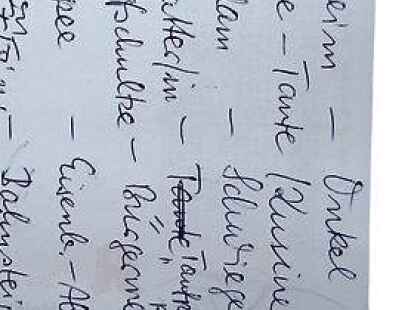 eim – Onkel
e – Tante / Kusine
lam – Schwiege
utter/in – Tante, Tante
tschultze – Bürgerme
see – Eisenb. – Ab
– Bahnstei